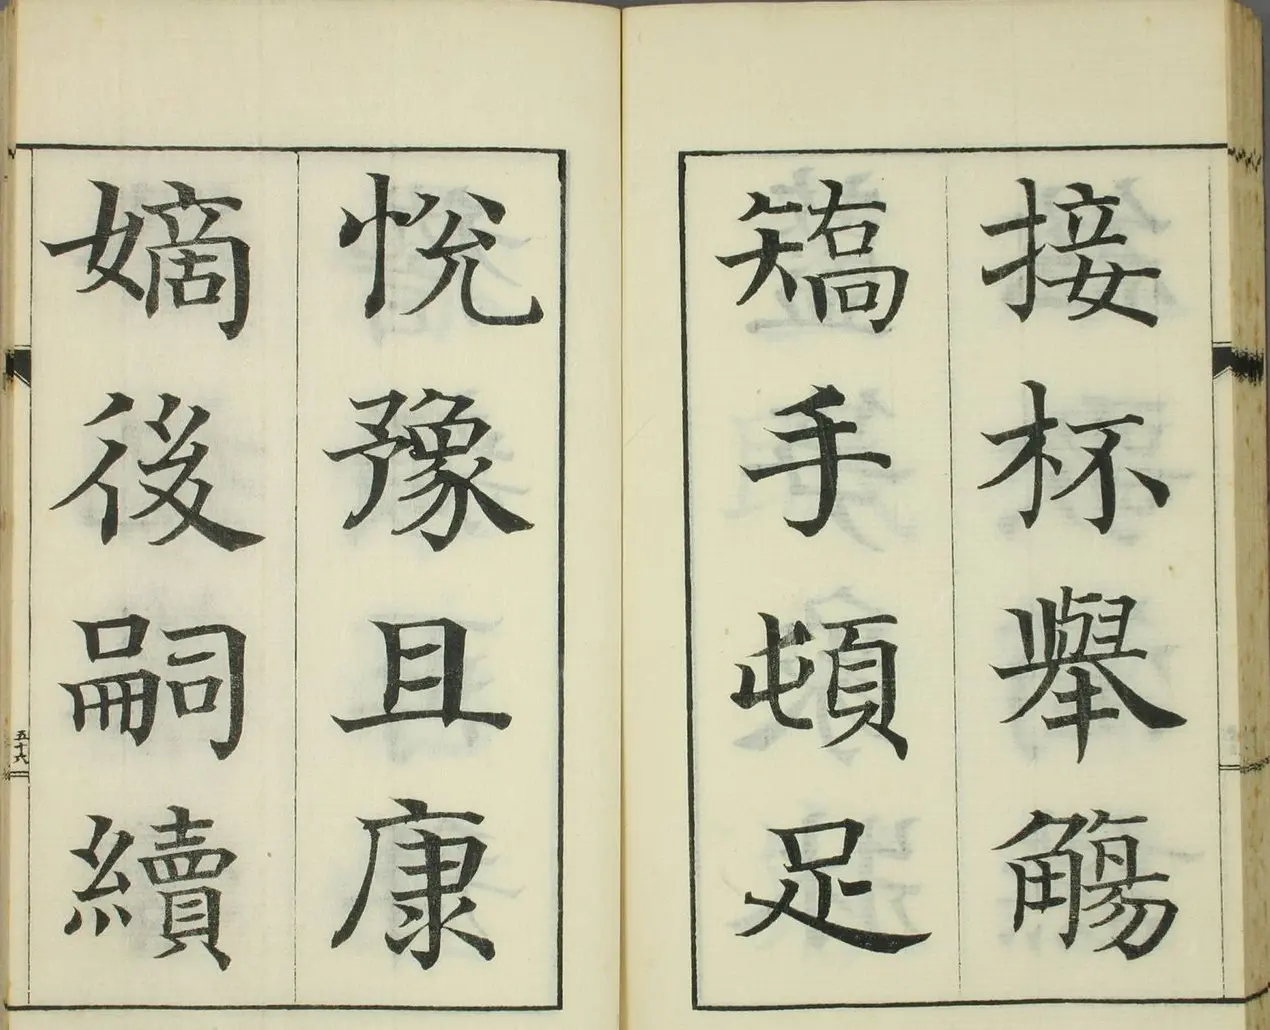 接杯舉觴
矯手頓足
悅豫且康
嫡後嗣續
五十六